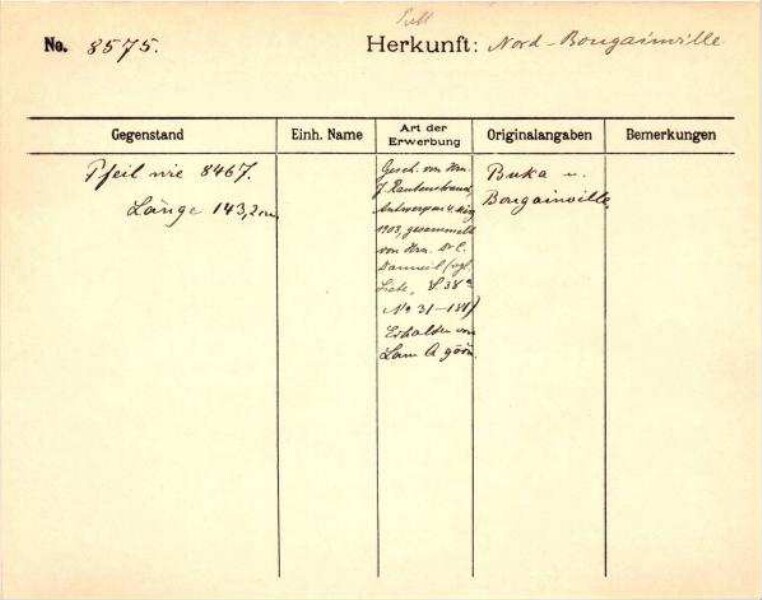 No. 8575.
Herkunft: Nord-Bougainville
Gegenstand
Einh. Name
Art der
Erwerbung
Originalangaben
Bemerkungen
Pfeil wie 8467.
Länge 143,2 cm
Gesch. von Hrn.
J. Rautenstrauch,
Antwerpen 4.
1908, gesammelt
von Hrn. Dr C.
(vgl.
Liste, S. 38a
No 31-187)
Erhalten von
Buka u.
Bougainville,